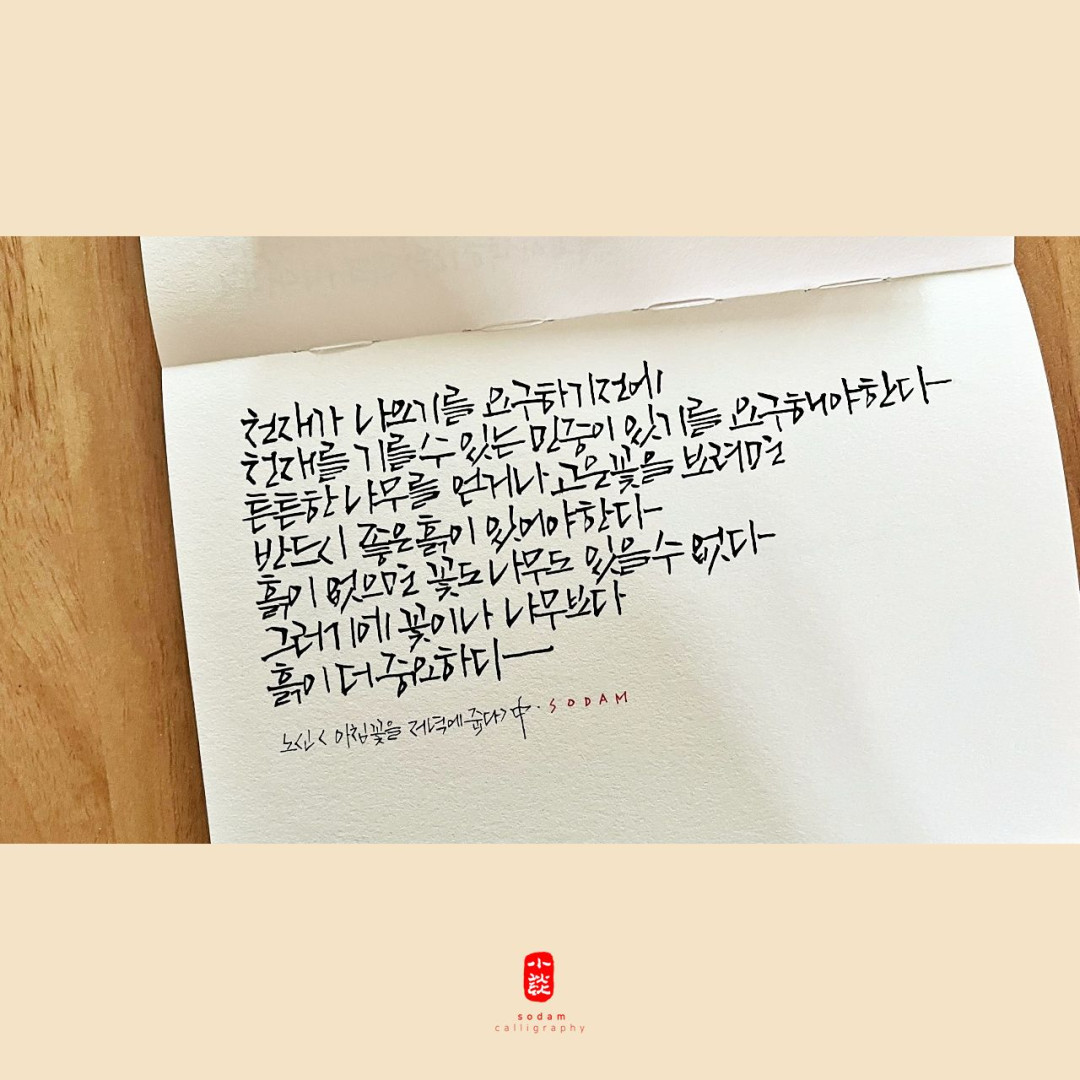 천재가 나오기를 요구하기전에
천재를 기를수 있는 민중이 있기를 요구해야한다
튼튼한 나무를 얻거나 고운꽃을 보려면
반드시 좋은흙이 있어야한다
흙이 없으면 꽃도 나무도 있을수 없다
그러기에 꽃이나 나무보다
흙이 더 중요하다
노신< 아침꽃을 저녁에 줍다>中·SODAM
小談
sodam
calligraphy